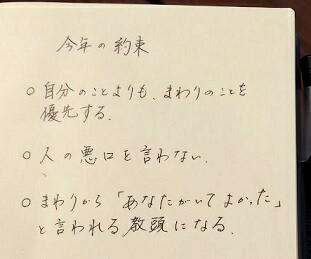 今年の約束
○自分のことよりも、まわりのことを
優先する.
○人の悪口を言わない.
○まわりから「あなたがいてよかった」
と言われる教頭になる.